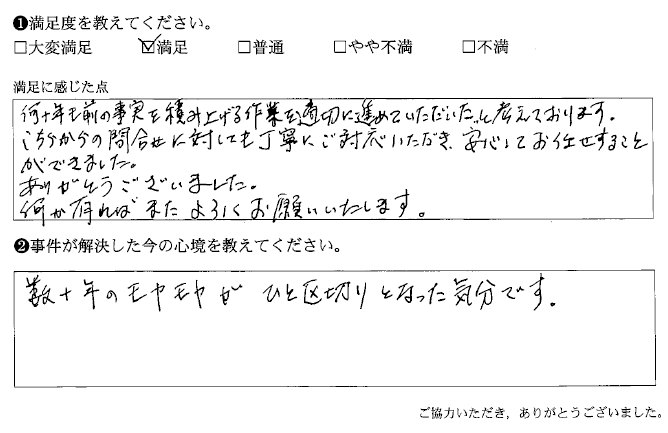 ❶満足度を教えてください。
□大変満足 ☑満足 □普通 □やや不満 □不満
満足に感じた点
何十年も前の事実を積み上げる作業を適切に進めていただいたと考えております。
こちらからの問合せに対しても丁寧にご対応いただき、安心してお任せすること
ができました。
ありがとうございました。
何か有ればまたよろしくお願いいたします。
❷事件が解決した今の心境を教えてください。
数十年のモヤモヤが ひと区切りとなった気分です。
ご協力いただき，ありがとうございました。